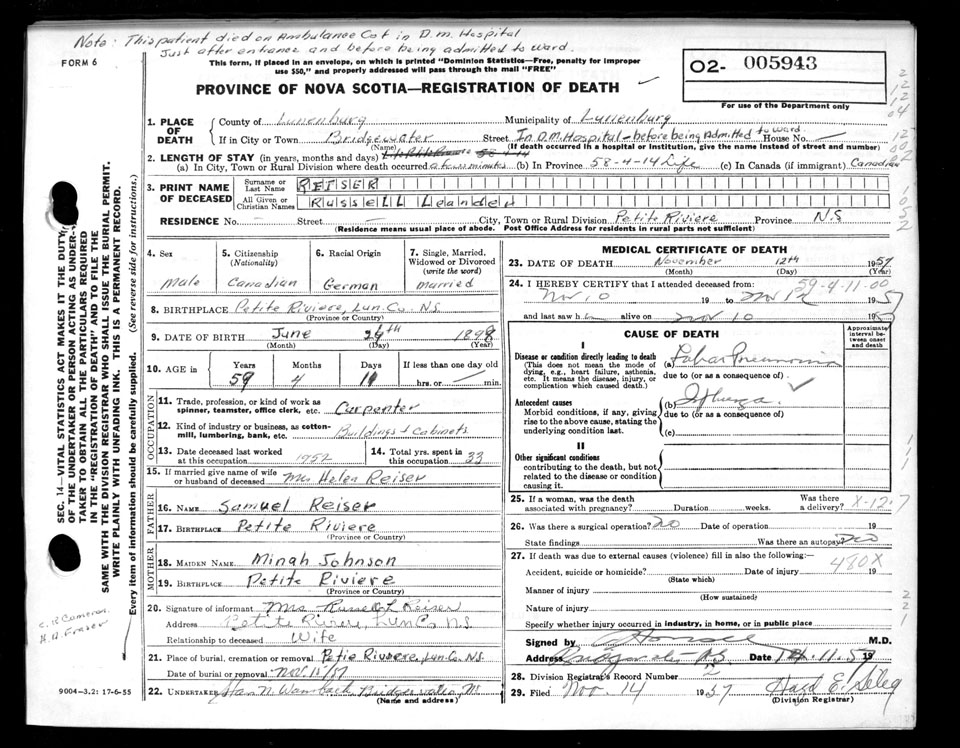 Note: This patient died on Ambulance Cot in D.M. Hospital
Just after entrance and before being admitted to ward.
FORM 6
This form, if placed in an envelope, on which is printed "Dominion Statistics—Free, penalty for improper
use $50," and properly addressed will pass through the mail "FREE"
O2- 005943
For use of the Department only
PROVINCE OF NOVA SCOTIA—REGISTRATION OF DEATH
1. PLACE OF DEATH
County of Lunenburg Municipality of Lunenburg
If in City or Town Bridgewater (Name) Street In D.M. Hospital - before being admitted to ward House No. —
(If death occurred in a hospital or institution, give the name instead of street and number)
2. LENGTH OF STAY (in years, months and days)
(a) In City, Town or Rural Division where death occurred a few minutes (b) In Province 58-4-14 Life (c) In Canada (if immigrant) Canadian
3. PRINT NAME OF DECEASED
Surname or Last Name REISER
All Given or Christian Names RUSSELL Leander
RESIDENCE No. — Street — City, Town or Rural Division Petite Riviere Province N.S
(Residence means usual place of abode. Post Office Address for residents in rural parts not sufficient)
4. Sex Male
5. Citizenship (Nationality) Canadian
6. Racial Origin German
7. Single, Married, Widowed or Divorced (write the word) Married
8. BIRTHPLACE Petite Riviere, Lun. Co. N.S.
(Province or Country)
9. DATE OF BIRTH June (Month) (Day) 1898 (Year)
10. AGE in Years 59 Months 4 Days If less than one day old hrs. or — min.
OCCUPATION
11. Trade, profession, or kind of work as spinner, teamster, office clerk, etc. Carpenter
12. Kind of industry or business, as cotton-mill, lumbering, bank, etc. Buildings & Cabinets
13. Date deceased last worked at this occupation 1952
14. Total yrs. spent in this occupation 33
15. If married give name of wife or husband of deceased Mrs Helen Reiser
FATHER
16. NAME Samuel Reiser
17. BIRTHPLACE Petite Riviere
(Province or Country)
MOTHER
18. MAIDEN NAME Minah Johnson
19. BIRTHPLACE Petite Riviere
(Province or Country)
20. Signature of informant Mrs Russell L Reiser
Address Petite Riviere, Lun Co, N.S.
Relationship to deceased Wife
21. Place of burial, cremation or removal Petie Riviere, Lun. Co. N.S.
Date of burial or removal Nov. 15/57
22. UNDERTAKER
(Name and address)
9004-3,2: 17-6-55
SEC. 14—VITAL STATISTICS ACT MAKES IT THE DUTY
OF THE UNDERTAKER OR PERSON ACTING AS UNDER-
TAKER TO OBTAIN ALL THE PARTICULARS REQUIRED
IN THE "REGISTRATION OF DEATH" AND TO FILE THE
SAME WITH THE DIVISION REGISTRAR WHO SHALL ISSUE THE BURIAL PERMIT.
WRITE PLAINLY WITH UNFADING INK. THIS IS A PERMANENT RECORD.
Every item of information should be carefully supplied. (See reverse side for instructions.)
C. R Cameron
H. A. Fraser
MEDICAL CERTIFICATE OF DEATH
23. DATE OF DEATH November (Month) 12th (Day) 1957 (Year)
24. I HEREBY CERTIFY that I attended deceased from: 59-4-11-00
Nov 10 19 to Nov 12 1957
and last saw h alive on Nov 10 195
CAUSE OF DEATH
Approximate interval between onset and death
I
Disease or condition directly leading to death
(This does not mean the mode of dying, e.g., heart failure, asthenia, etc. It means the disease, injury, or complication which caused death.)
(a) Lobar Pneumonia
due to (or as a consequence of)
Antecedent causes
Morbid conditions, if any, giving rise to the above cause, stating the underlying condition last.
(b)
due to (or as a consequence of)
(c)
II
Other significant conditions
contributing to the death, but not related to the disease or condition causing it.
25. If a woman, was the death associated with pregnancy? Duration weeks. Was there a delivery? X-12-7
26. Was there a surgical operation? No Date of operation 19
State findings Was there an autopsy? No
27. If death was due to external causes (violence) fill in also the following:—
480X
Accident, suicide or homicide? (State which) Date of injury 19
Manner of injury
(How sustained)
Nature of injury
Specify whether injury occurred in industry, in home, or in public place
Signed by M.D.
Address Date 14.11.57 19
28. Division Registrar's Record Number
29. Filed Nov. 14 1957
(Division Registrar)